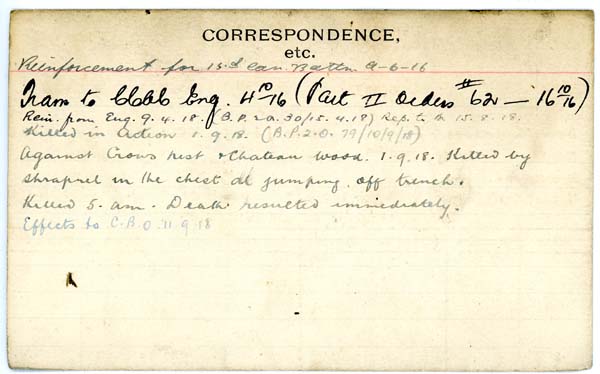 CORRESPONDENCE,
etc.
Reinforcement for 1st Can. Battn. 9-6-16
Trans to Eng. 4/10/16 (Part II Orders #62 — 16/10/16)
Rein. from Eng. 9.4.18. (B.P.2.O. 30/15.4.18) Rep. to 15.8.18.
Killed in action 1.9.18. (B.P.2.O. 79/10/9/18)
Against Crows nest & Chateau wood. 1.9.18. Killed by
shrapnel in the chest at jumping off trench.
Killed 5. am. Death resulted immediately.
Effects to C.B.O. 11.9.18